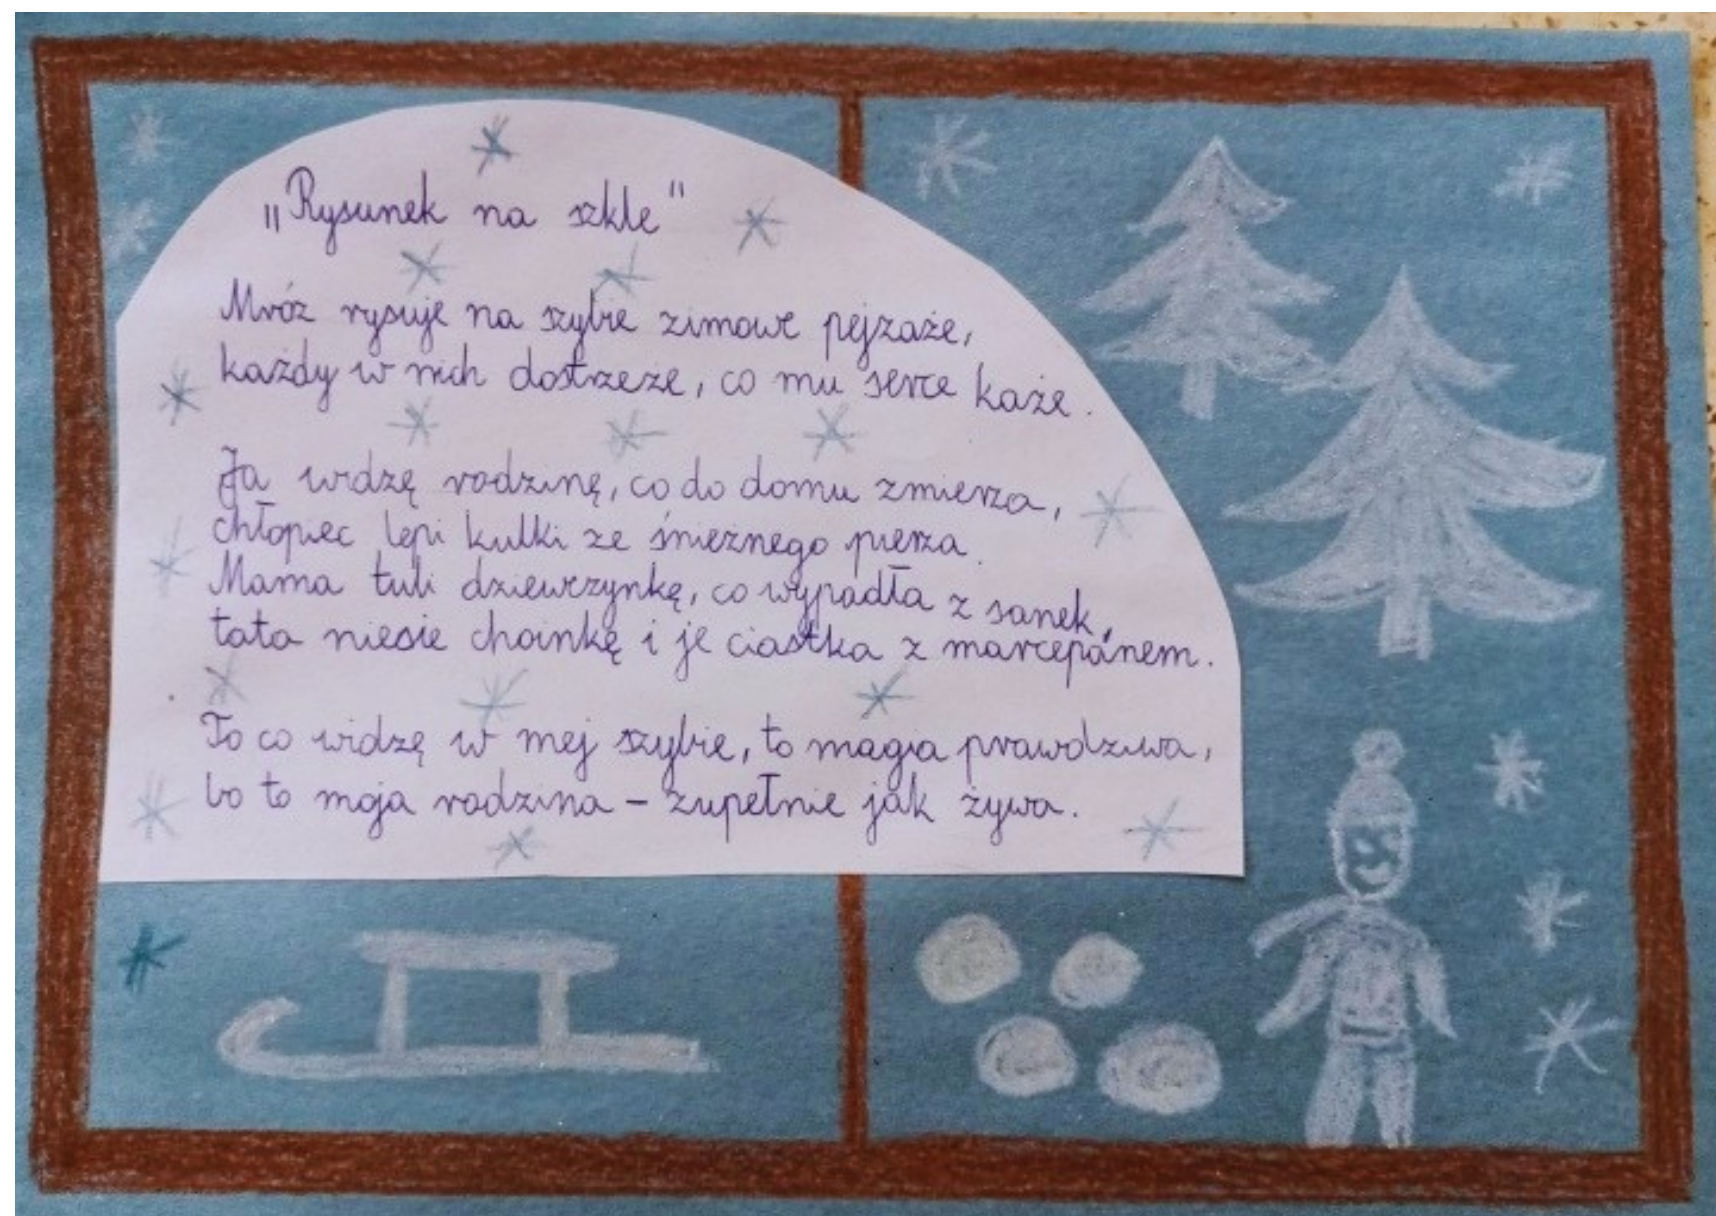 „Rysunek na szkle"
Mróz rysuje na szybie zimowe pejzaże,
każdy w nich dostrzeże, co mu serce każe.
Ja widzę rodzinę, co do domu zmierza,
chłopiec lepi kulki ze śnieżnego pierza.
Mama tuli dziewczynkę, co wypadła z sanek,
tata niesie choinkę i je ciastka z marcepanem.
To co widzę w mej szybie, to magia prawdziwa,
bo to moja rodzina – zupełnie jak żywa.